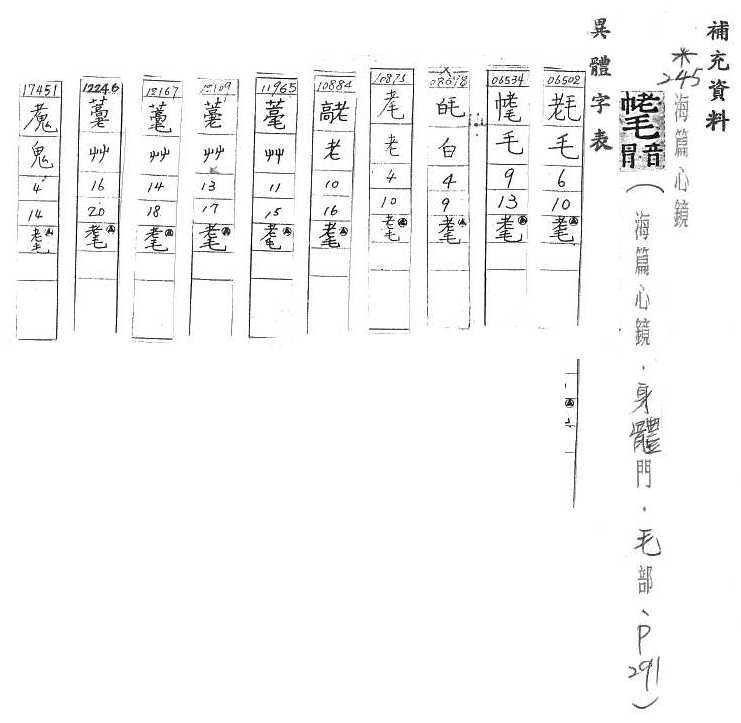 補充資料
※245海篇心鏡
音冒
(海篇心鏡.身體門.毛部、P291)
異體字表
06508
毛
6
10
耄
06534
毛
9
13
耄
白
4
9
耄
老
4
10
耄
10884
老
10
16
耄
11965
艸
11
15
耄
艸
13
17
耄
12167
艸
14
18
耄
12246
艸
16
20
耄
17451
鬼
4
14
耄